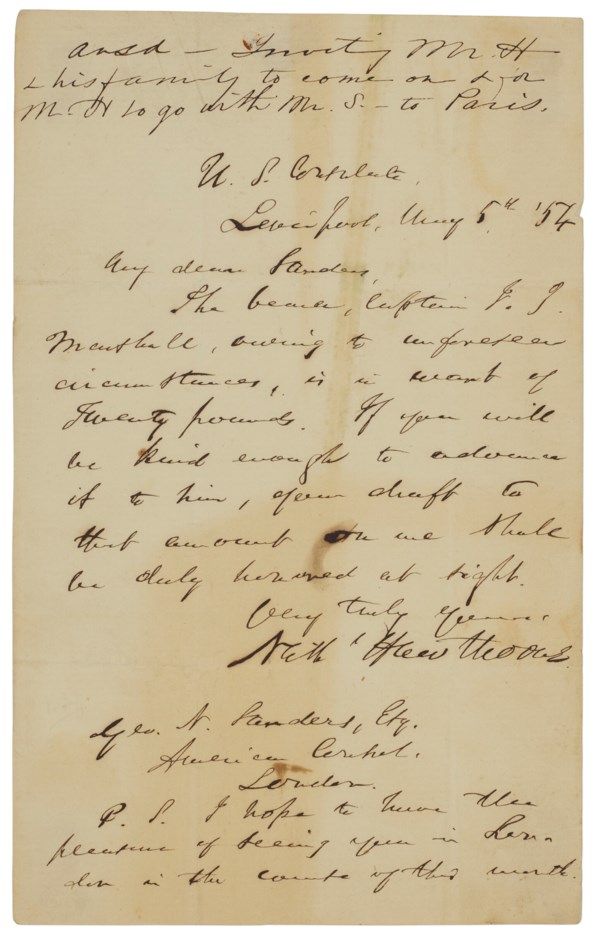 ansd — Inviting Mr. H
& his family to come on & for
Mr. H to go with Mr. S. — to Paris.
U. S. Consulate,
Liverpool, May 5th '54
My dear Sanders,
The bearer, Captain F. J.
Marshall, owing to unforeseen
circumstances, is in want of
Twenty pounds. If you will
be kind enough to advance
it to him, your draft to
that amount on me shall
be duly honored at sight.
Very truly yours,
Nath' Hawthorne
Geo. N. Sanders, Esq.
American Consul.
London.
P. S. I hope to have the
pleasure of seeing you in Lon-
don in the course of this month.